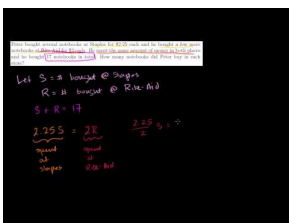 Peter bought several notebooks at Staples for $2.25 each and he bought a few more
notebooks at Rite-Aid for $2 each. He spent the same amount of money in both places
and he bought 17 notebooks in total. How many notebooks did Peter buy in each
store?
Let S = # bought @ Staples
R = # bought @ Rite-Aid
S + R = 17
2.25 S = 2R
spent at Staples
spent at Rite-Aid
2.25/2 S =